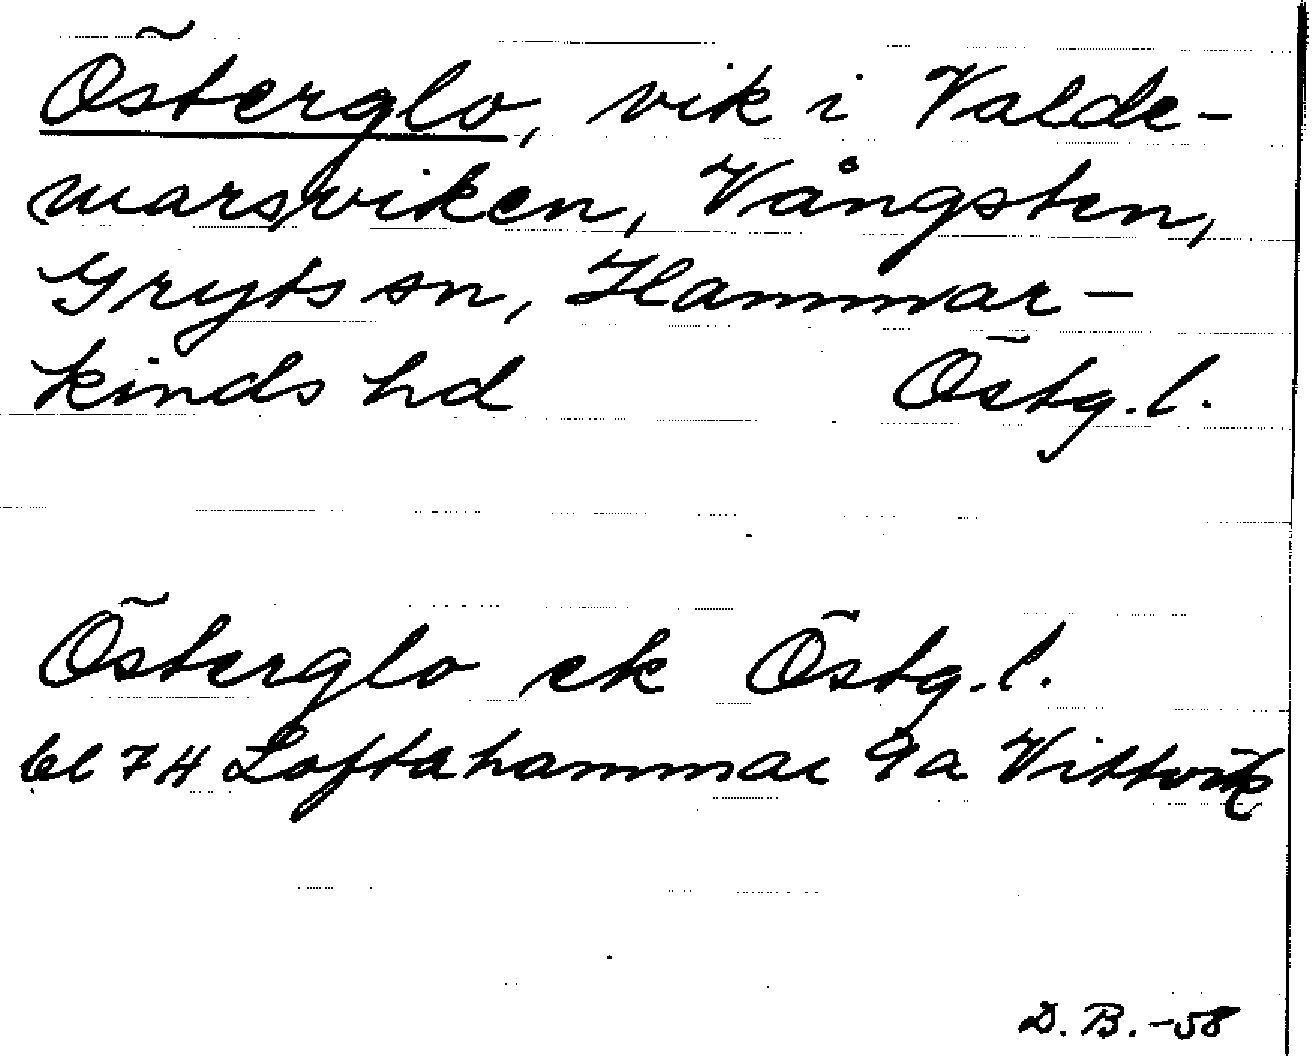 Österglo, vik i Valde-
marsviken, Vångsten,
Gryts sn, Hammar-
kinds hd Östg.l.
Österglo ek Östg.l.
bl 7H Loftahammar 9a
D.B.-58